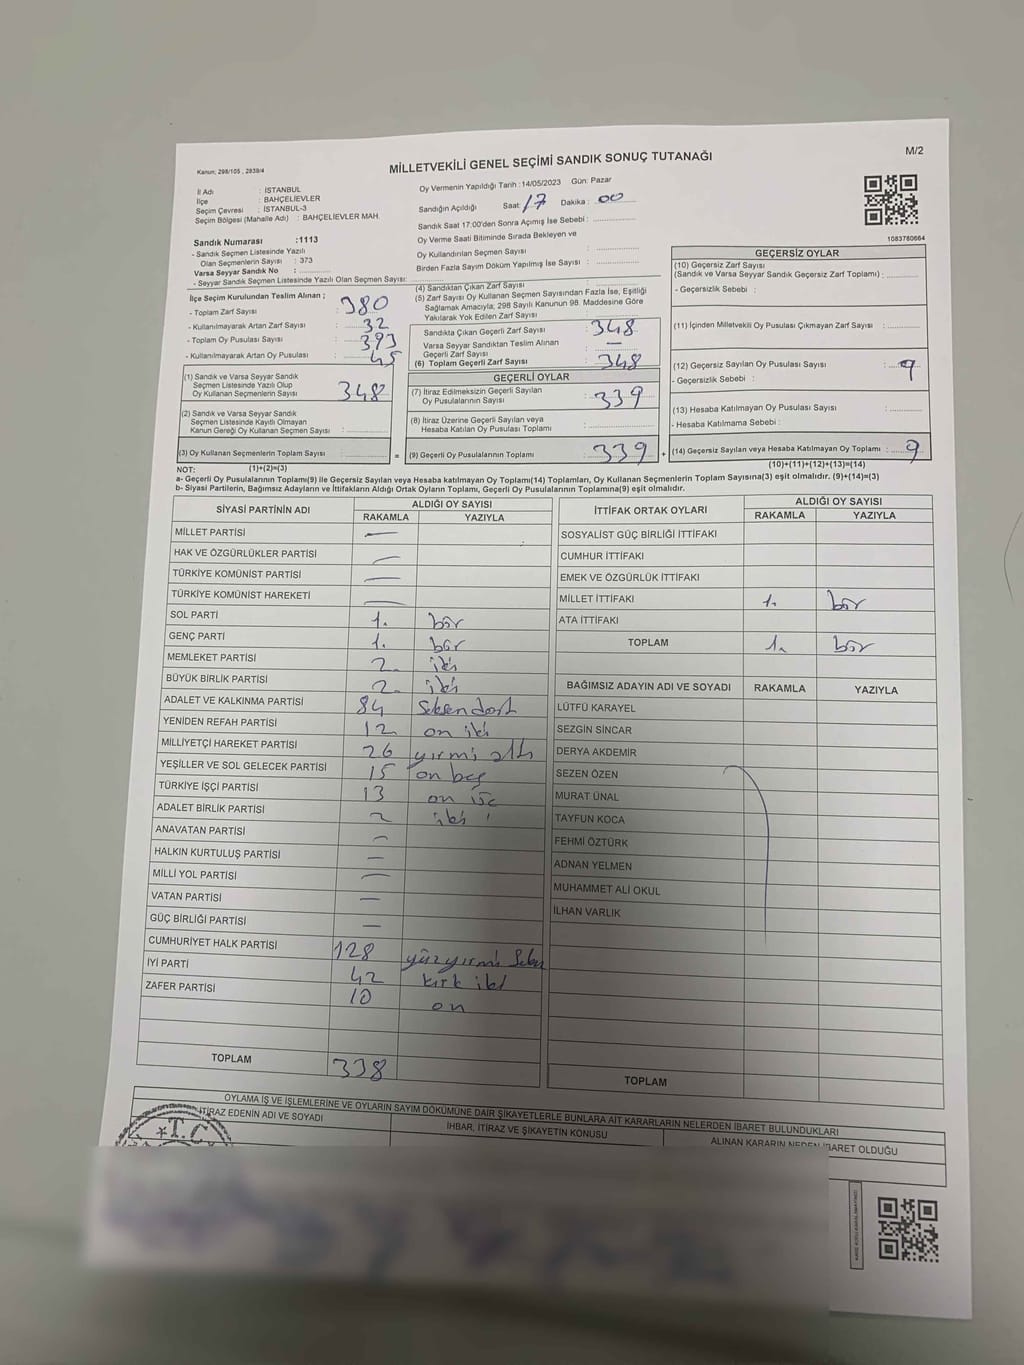 Kanun; 298/105 , 2839/4
MİLLETVEKİLİ GENEL SEÇİMİ SANDIK SONUÇ TUTANAĞI
M/2
İl Adı : İSTANBUL
İlçe : BAHÇELİEVLER
Seçim Çevresi : İSTANBUL-3
Seçim Bölgesi (Mahalle Adı) : BAHÇELİEVLER MAH.
Oy Vermenin Yapıldığı Tarih :14/05/2023 Gün: Pazar
Sandığın Açıldığı Saat: 17 Dakika: 00
Sandık Saat 17:00'den Sonra Açılmış İse Sebebi :
Oy Verme Saati Bitiminde Sırada Bekleyen ve
Oy Kullandırılan Seçmen Sayısı :
Birden Fazla Sayım Döküm Yapılmış İse Sayısı :
1083780664
Sandık Numarası :1113
- Sandık Seçmen Listesinde Yazılı
Olan Seçmenlerin Sayısı : 373
Varsa Seyyar Sandık No :
- Seyyar Sandık Seçmen Listesinde Yazılı Olan Seçmen Sayısı:
İlçe Seçim Kurulundan Teslim Alınan ;
- Toplam Zarf Sayısı : 380
- Kullanılmayarak Artan Zarf Sayısı : 32
- Toplam Oy Pusulası Sayısı : 393
- Kullanılmayarak Artan Oy Pusulası : 45
(1) Sandık ve Varsa Seyyar Sandık
Seçmen Listesinde Yazılı Olup
Oy Kullanan Seçmen Sayısı : 348
(2) Sandık ve Varsa Seyyar Sandık
Seçmen Listesinde Kayıtlı Olmayan
Kanun Gereği Oy Kullanan Seçmen Sayısı :
(3) Oy Kullanan Seçmenlerin Toplam Sayısı :
(4) Sandıktan Çıkan Zarf Sayısı :
(5) Zarf Sayısı Oy Kullanan Seçmen Sayısından Fazla İse, Eşitliği
Sağlamak Amacıyla; 298 Sayılı Kanunun 98. Maddesine Göre
Yakılarak Yok Edilen Zarf Sayısı :
Sandıkta Çıkan Geçerli Zarf Sayısı : 348
Varsa Seyyar Sandıktan Teslim Alınan
Geçerli Zarf Sayısı : —
(6) Toplam Geçerli Zarf Sayısı : 348
GEÇERLİ OYLAR
(7) İtiraz Edilmeksizin Geçerli Sayılan
Oy Pusulalarının Sayısı : 339
(8) İtiraz Üzerine Geçerli Sayılan veya
Hesaba Katılan Oy Pusulası Toplamı :
= (9) Geçerli Oy Pusulalarının Toplamı : 339 +
GEÇERSİZ OYLAR
(10) Geçersiz Zarf Sayısı
(Sandık ve Varsa Seyyar Sandık Geçersiz Zarf Toplamı) :
- Geçersizlik Sebebi :
(11) İçinden Milletvekili Oy Pusulası Çıkmayan Zarf Sayısı :
(12) Geçersiz Sayılan Oy Pusulası Sayısı : 9
- Geçersizlik Sebebi :
(13) Hesaba Katılmayan Oy Pusulası Sayısı :
- Hesaba Katılmama Sebebi :
(14) Geçersiz Sayılan veya Hesaba Katılmayan Oy Toplamı : 9
NOT: (1)+(2)=(3)
(10)+(11)+(12)+(13)=(14)
a- Geçerli Oy Pusulalarının Toplamı(9) ile Geçersiz Sayılan veya Hesaba katılmayan Oy Toplamı(14) Toplamları, Oy Kullanan Seçmenlerin Toplam Sayısına(3) eşit olmalıdır. (9)+(14)=(3)
b- Siyasi Partilerin, Bağımsız Adayların ve İttifakların Aldığı Ortak Oyların Toplamı, Geçerli Oy Pusulalarının Toplamına(9) eşit olmalıdır.
SİYASİ PARTİNİN ADI
ALDIĞI OY SAYISI
RAKAMLA YAZIYLA
MİLLET PARTİSİ —
HAK VE ÖZGÜRLÜKLER PARTİSİ —
TÜRKİYE KOMÜNİST PARTİSİ —
TÜRKİYE KOMÜNİST HAREKETİ —
SOL PARTİ 1. bir
GENÇ PARTİ 1. bir
MEMLEKET PARTİSİ 2. iki
BÜYÜK BİRLİK PARTİSİ 2. iki
ADALET VE KALKINMA PARTİSİ 84 Seksen dört
YENİDEN REFAH PARTİSİ 12 on iki
MİLLİYETÇİ HAREKET PARTİSİ 26 yirmi altı
YEŞİLLER VE SOL GELECEK PARTİSİ 15 on beş
TÜRKİYE İŞÇİ PARTİSİ 13 on üç
ADALET BİRLİK PARTİSİ 2 iki
ANAVATAN PARTİSİ —
HALKIN KURTULUŞ PARTİSİ —
MİLLİ YOL PARTİSİ —
VATAN PARTİSİ —
GÜÇ BİRLİĞİ PARTİSİ —
CUMHURİYET HALK PARTİSİ 128 yüzyirmi Sekiz
İYİ PARTİ 42 kırk iki
ZAFER PARTİSİ 10 on
TOPLAM 338
İTTİFAK ORTAK OYLARI
ALDIĞI OY SAYISI
RAKAMLA YAZIYLA
SOSYALİST GÜÇ BİRLİĞİ İTTİFAKI
CUMHUR İTTİFAKI
EMEK VE ÖZGÜRLÜK İTTİFAKI
MİLLET İTTİFAKI 1. bir
ATA İTTİFAKI
TOPLAM 1. bir
BAĞIMSIZ ADAYIN ADI VE SOYADI RAKAMLA YAZIYLA
LÜTFÜ KARAYEL
SEZGİN SİNCAR
DERYA AKDEMİR
SEZEN ÖZEN
MURAT ÜNAL
TAYFUN KOCA
FEHMİ ÖZTÜRK
ADNAN YELMEN
MUHAMMET ALİ OKUL
İLHAN VARLIK
TOPLAM
OYLAMA İŞ VE İŞLEMLERİNE VE OYLARIN SAYIM DÖKÜMÜNE DAİR ŞİKAYETLERLE BUNLARA AİT KARARLARIN NELERDEN İBARET BULUNDUKLARI
İTİRAZ EDENİN ADI VE SOYADI
İHBAR, İTİRAZ VE ŞİKAYETİN KONUSU
ALINAN KARARIN NEDEN İBARET OLDUĞU
T.C